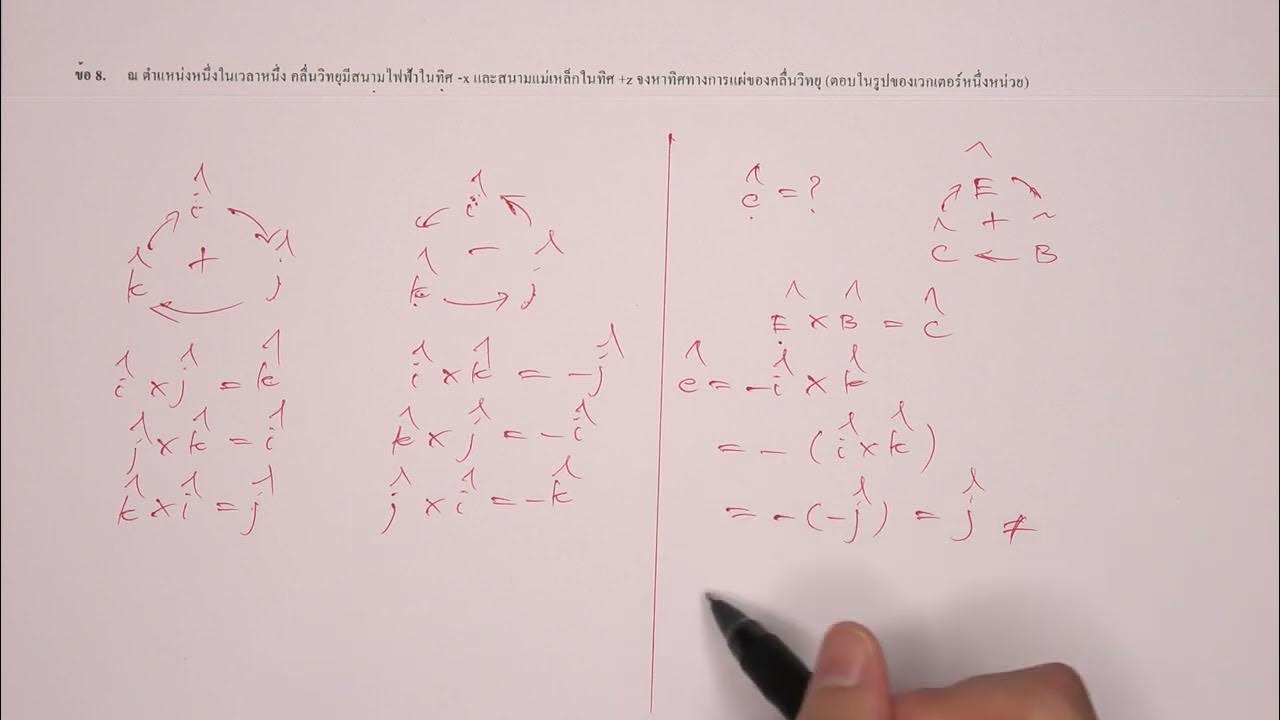 ข้อ 8. ณ ตำแหน่งหนึ่งในเวลาหนึ่ง คลื่นวิทยุมีสนามไฟฟ้าในทิศ -x และสนามแม่เหล็กในทิศ +z จงหาทิศทางการแผ่ของคลื่นวิทยุ (ตอบในรูปของเวกเตอร์หนึ่งหน่วย)
î
k̂ + ĵ
î × ĵ = k̂
ĵ × k̂ = î
k̂ × î = ĵ
î
k̂ − ĵ
î × k̂ = −ĵ
k̂ × ĵ = −î
ĵ × î = −k̂
ĉ = ?
Ê
+
Ĉ ← B̂
Ê × B̂ = Ĉ
ĉ = −î × k̂
= −(î × k̂)
= −(−ĵ) = ĵ #